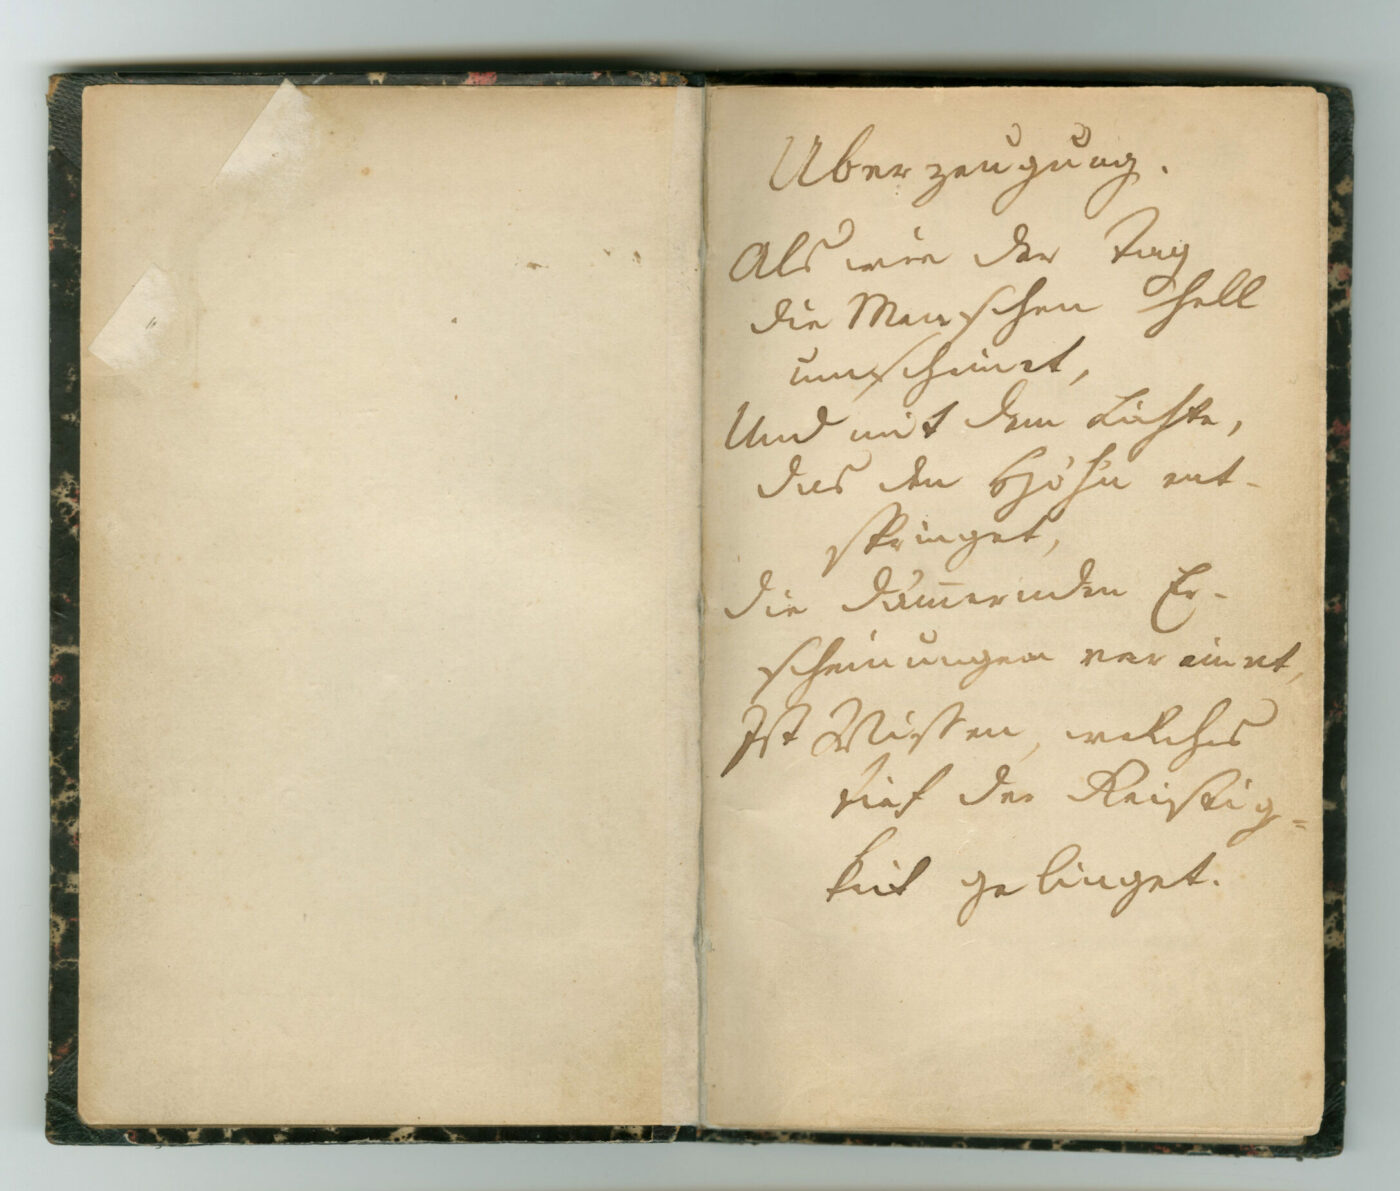 Überzeugung.
Als wie der Tag
die Menschen hell
umscheinet,
Und mit dem Lichte,
das den Höh'n ent-
springet,
Die dämmernden Er-
scheinungen vereinet,
Ist Wissen, welches
tief der Geistig=
keit gelinget.